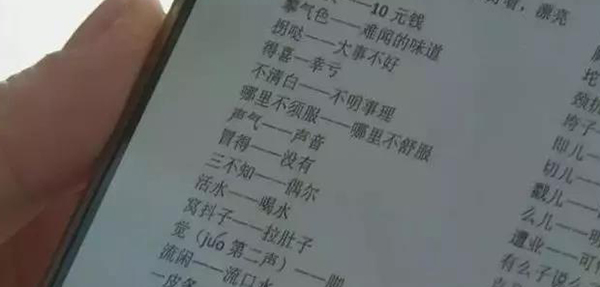 ——10 元钱
漂亮
气色——难闻的味道
拐哒——大事不好
得喜—幸亏
不清白——不明事理
哪里不须服——哪里不舒服
声气——声音
冒得——没有
三不知——偶尔
活水——喝水
窝抖子——拉肚子
觉（juó 第二声）——
流闲——流口水
坨
颈
子—
即儿—
切儿—
戳儿—
么儿—明
遭业—可
有么子说